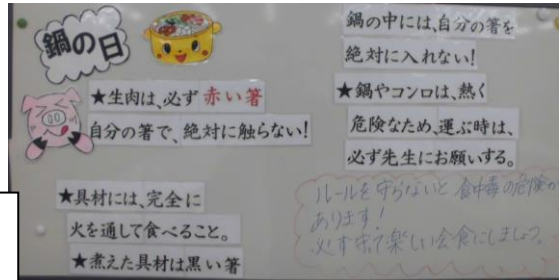 鍋の日
★生肉は、必ず赤い箸
自分の箸で、絶対に触らない!
★具材には、完全に
火を通して食べること。
★煮えた具材は黒い箸
鍋の中には、自分の箸を
絶対に入れない!
★鍋やコンロは、熱く
危険なため、運ぶ時は、
必ず先生にお願いする。
ルールを守らないと食中毒の危険が
あります!
必ず守って楽しい会食にしましょう。